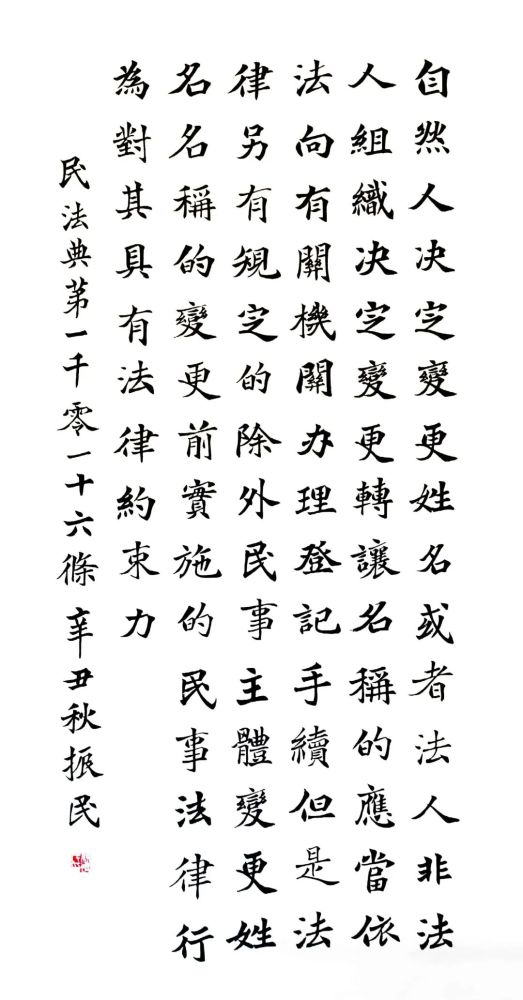 自然人决定變更姓名或者法人非法
人組織决定變更轉讓名稱的應當依
法向有關機關办理登記手續但是法
律另有規定的除外民事主體變更姓
名名稱的變更前實施的民事法律行
為對其具有法律約束力
民法典第一千零一十六條 辛丑秋振民